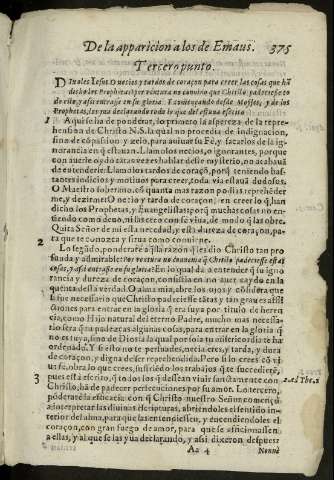 De la apparicion a los de Emaus. 375
Tercero punto.
Dixoles Iesus: O necios y tardos de coraçon para creer las cosas que hã
dicho los Prophetas: por vẽtura no conuino que Christo padeciesse to
do esto, y assi entrasse en su gloria? Y començando desde Moyses, y de los
Prophetas, les yua declarando todo lo que del estaua escrito.
1 Aqui se ha de ponderar, lo primero la aspereza de la repre-
hension de Christo N. S. la qual no procedia de indignacion,
sino de cõpassion y zelo, para auiuar su Fè, y sacarlos de la ig-
norancia en q̃ estauan. Llamolos necios, o ignorantes, porque
con auerle oydo tantas vezes hablar deste mysterio, no acabauã
de entenderlo. Llamolos tardos de coraçõ, porq̃ teniendo bas-
tantes indicios y motiuos para creer, toda via estauã dudosos.
O Maestro soberano, cõ quanta mas razon podias reprehẽder
me, y dezirme: O necio y tardo de coraçon, en creer lo q̃ han
dicho los Prophetas y Euangelistas: porq̃ muchas cosas no en-
tiendo como deuo, ni las creo con fe viua, de modo q̃ las obre.
Quita Señor de mi esta necedad, y esta dureza de coraçon, pa-
ra que te conozca y sirua como conuiene.
2 Lo segũdo, ponderarè q̃ la razõ q̃ les dio Christo tan pro-
funda y admirable: Por ventura no conuenia q̃ Christo padeciesse estas
cosas, y assi entrasse en su gloria? En lo qual dà a entender q̃ su igno
rancia y dureza de coraçon, consistia en no auer caydo en la
quenta desta verdad. O alma mia, abre los ojos y cõsidera que
si fue necessario que Christo padeciesse tãtas y tan graues afflic
ciones para entrar en la gloria q̃ era suya por titulo de heren
cia, como Hijo natural del eterno Padre, mucho mas necessa-
rio serà q̃ tu padezcas algunas cosas, para entrar en la gloria q̃
no es tuya, sino de Dios: la qual por sola su misericordia se ha
ordenado. Y si esto no te persuades, necia eres, y tarda, y dura
de coraçon, y digna de ser reprehendida. Pero si lo crees cõ vi
ua fè, obra lo que crees, sufriẽdo los trabajos q̃ te succedierẽ,
pues està escrito, q̃ todos los q̃ dessean viuir santamente con
3 Christo, hã de padecer persecuciones por su amor. Lo tercero, 2. ad Thi. 3.
põderarè la eficacia con q̃ Christo nuestro Señor començò
a interpretar las diuinas escripturas, abriẽdoles el sentido in-
terior del alma, para que las entendiessen, y encendiendoles el
coraçon, con gran fuego de amor, para que se afficionassen
a ellas, y al que se las yua declarando, y assi dixeron despues:
Aa 4 Nonne